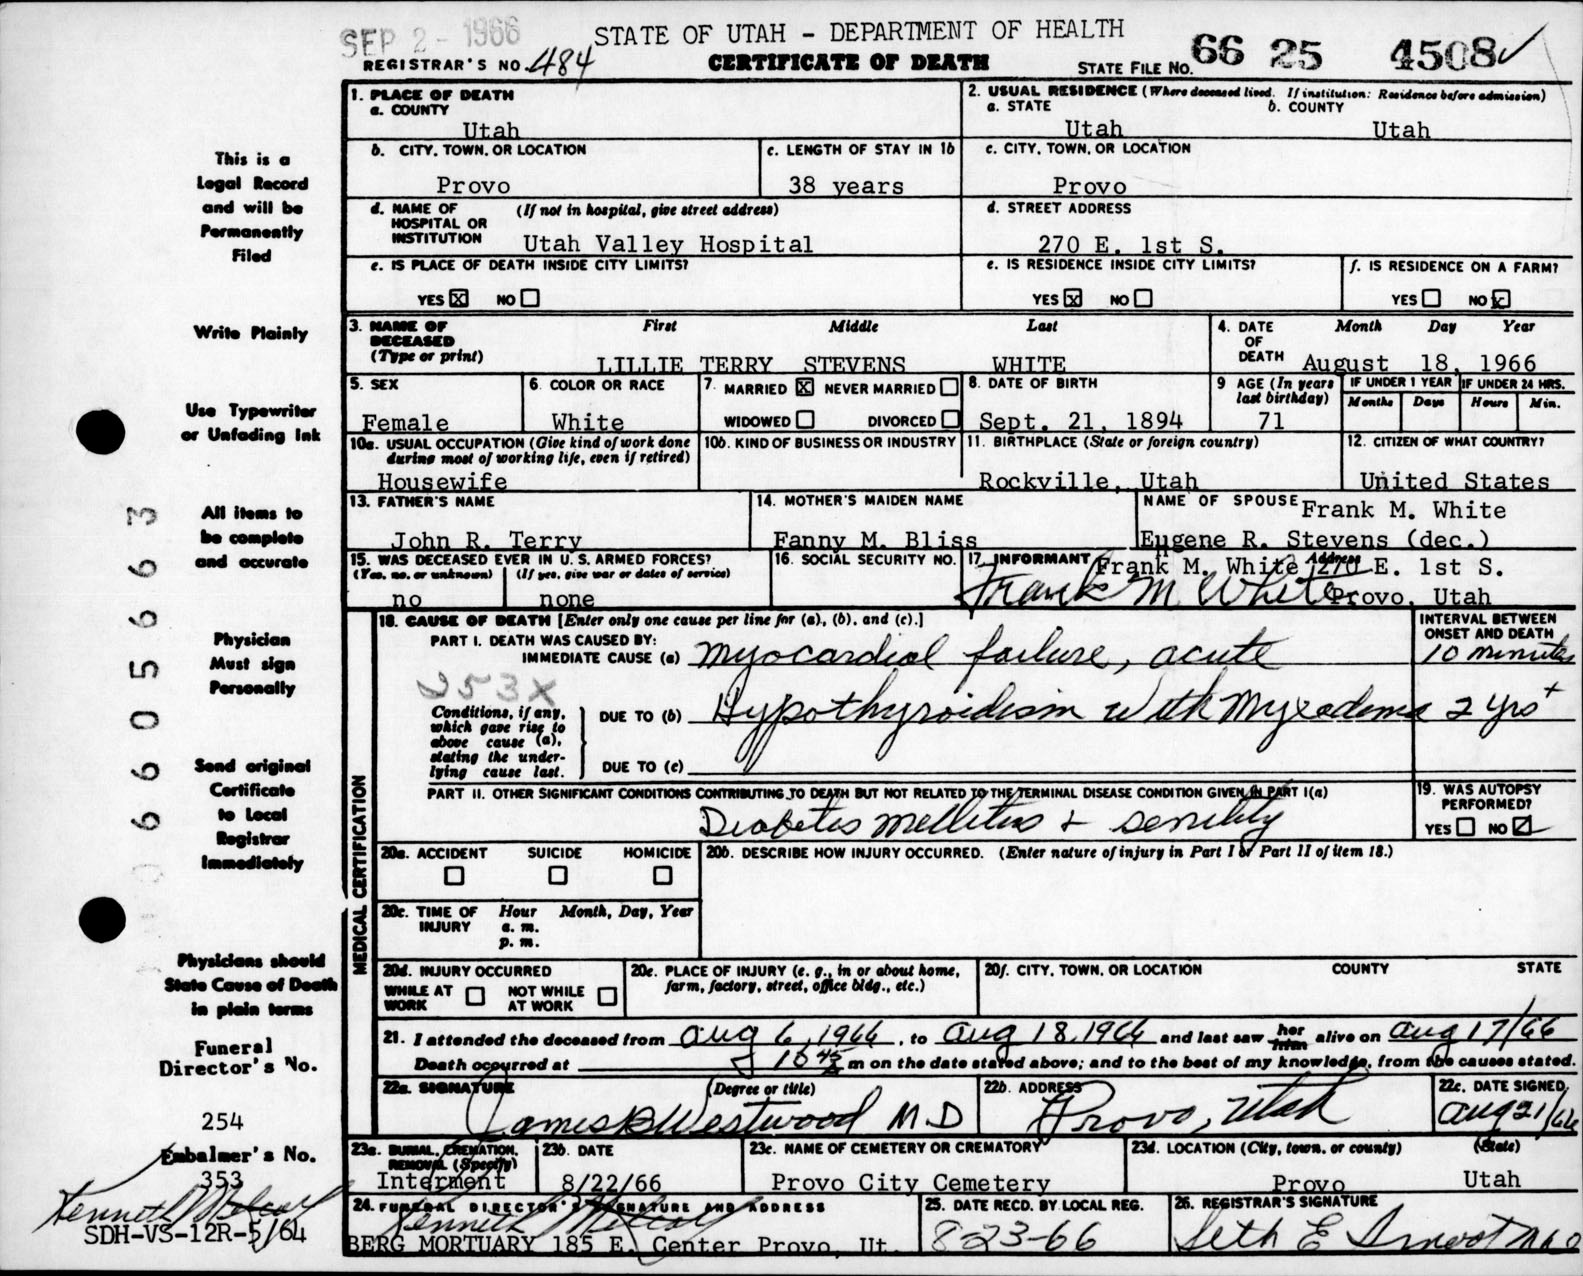 SEP 2 - 1966
STATE OF UTAH - DEPARTMENT OF HEALTH
REGISTRAR'S NO. 484
CERTIFICATE OF DEATH
STATE FILE NO. 66 25 4508 ✓
This is a
Legal Record
and will be
Permanently
Filed
Write Plainly
Use Typewriter
or Unfading Ink
All items to
be complete
and accurate
Physician
Must sign
Personally
Send original
Certificate
to Local
Registrar
Immediately
Physicians should
State Cause of Death
in plain terms
Funeral
Director's No.
254
Embalmer's No.
353
SDH-VS-12R-5/64
6605663
1. PLACE OF DEATH
a. COUNTY
Utah
2. USUAL RESIDENCE (Where deceased lived. If institution: Residence before admission)
a. STATE b. COUNTY
Utah Utah
b. CITY, TOWN, OR LOCATION
Provo
c. LENGTH OF STAY IN 1b
38 years
c. CITY, TOWN, OR LOCATION
Provo
d. NAME OF (If not in hospital, give street address)
HOSPITAL OR
INSTITUTION Utah Valley Hospital
d. STREET ADDRESS
270 E. 1st S.
e. IS PLACE OF DEATH INSIDE CITY LIMITS?
YES x NO
e. IS RESIDENCE INSIDE CITY LIMITS?
YES x NO
f. IS RESIDENCE ON A FARM?
YES NO x
3. NAME OF First Middle Last
DECEASED
(Type or print)
LILLIE TERRY STEVENS WHITE
4. DATE Month Day Year
OF
DEATH August 18, 1966
5. SEX
Female
6. COLOR OR RACE
White
7. MARRIED x NEVER MARRIED
WIDOWED DIVORCED
8. DATE OF BIRTH
Sept. 21, 1894
9 AGE (In years
last birthday)
71
IF UNDER 1 YEAR IF UNDER 24 HRS.
Months Days Hours Min.
10a. USUAL OCCUPATION (Give kind of work done
during most of working life, even if retired)
Housewife
10b. KIND OF BUSINESS OR INDUSTRY
11. BIRTHPLACE (State or foreign country)
Rockville, Utah
12. CITIZEN OF WHAT COUNTRY?
United States
13. FATHER'S NAME
John R. Terry
14. MOTHER'S MAIDEN NAME
Fanny M. Bliss
NAME OF SPOUSE Frank M. White
Eugene R. Stevens (dec.)
15. WAS DECEASED EVER IN U. S. ARMED FORCES?
(Yes, no, or unknown) (If yes, give war or dates of service)
no none
16. SOCIAL SECURITY NO.
17. INFORMANT Frank M. White Address 270 E. 1st S.
Frank M White Provo, Utah
MEDICAL CERTIFICATION
18. CAUSE OF DEATH [Enter only one cause per line for (a), (b), and (c).]
INTERVAL BETWEEN
ONSET AND DEATH
PART I. DEATH WAS CAUSED BY:
IMMEDIATE CAUSE (a) Myocardial failure, acute 10 minutes
253X
Conditions, if any,
which gave rise to
above cause (a),
stating the under-
lying cause last.
DUE TO (b) Hypothyroidism with Myxedema 2 yrs +
DUE TO (c)
PART II. OTHER SIGNIFICANT CONDITIONS CONTRIBUTING TO DEATH BUT NOT RELATED TO THE TERMINAL DISEASE CONDITION GIVEN IN PART I(a)
Diabetes mellitus + senility
19. WAS AUTOPSY
PERFORMED?
YES NO ✓
20a. ACCIDENT SUICIDE HOMICIDE
20b. DESCRIBE HOW INJURY OCCURRED. (Enter nature of injury in Part I or Part II of item 18.)
20c. TIME OF Hour Month, Day, Year
INJURY a. m.
p. m.
20d. INJURY OCCURRED
WHILE AT NOT WHILE
WORK AT WORK
20e. PLACE OF INJURY (e. g., in or about home,
farm, factory, street, office bldg., etc.)
20f. CITY, TOWN, OR LOCATION COUNTY STATE
21. I attended the deceased from Aug 6, 1966, to Aug 18, 1966 and last saw her him alive on Aug 17/66
Death occurred at 10 45 m on the date stated above; and to the best of my knowledge, from the causes stated.
22a. SIGNATURE (Degree or title)
James B Westwood M.D
22b. ADDRESS
Provo, Utah
22c. DATE SIGNED
Aug 21/66
23a. BURIAL, CREMATION,
REMOVAL (Specify)
Interment
23b. DATE
8/22/66
23c. NAME OF CEMETERY OR CREMATORY
Provo City Cemetery
23d. LOCATION (City, town, or county) (State)
Provo Utah
24. FUNERAL DIRECTOR'S SIGNATURE AND ADDRESS
BERG MORTUARY 185 E. Center Provo, Ut.
25. DATE RECD. BY LOCAL REG.
8-23-66
26. REGISTRAR'S SIGNATURE
Seth E Smoot